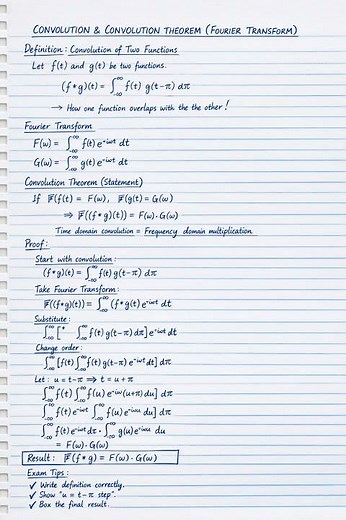 CONVOLUTION & CONVOLUTION THEOREM (FOURIER TRANSFORM)
Definition: Convolution of Two Functions
Let f(t) and g(t) be two functions.
(f*g)(t) = ∫_{-∞}^{∞} f(t) g(t-π) dπ
→ How one function overlaps with the the other!
Fourier Transform
F(ω) = ∫_{-∞}^{∞} f(t) e^{-iωt} dt
G(ω) = ∫_{-∞}^{∞} g(t) e^{-iωt} dt
Convolution Theorem (Statement)
If 𝔽(f(t) = F(ω), 𝔽(g(t) = G(ω)
⇒ 𝔽((f*g)(t)) = F(ω)·G(ω)
Time domain convolution = Frequency domain multiplication
Proof:
Start with convolution:
(f*g)(t) = ∫_{-∞}^{∞} f(t) g(t-π) dπ
Take Fourier Transform:
𝔽((f*g)(t)) = ∫_{-∞}^{∞} (f*g)(t) e^{-iωt} dt
Substitute:
∫_{-∞}^{∞} [" ∫_{-∞}^{∞} f(t) g(t-π) dπ] e^{-iωt} dt
Change order:
∫_{-∞}^{∞} [f(t) ∫_{-∞}^{∞} g(t-π) e^{-iωt} dt] dπ
Let: u = t-π ⇒ t = u+π
∫_{-∞}^{∞} f(t) ∫_{-∞}^{∞} f(u) e^{-iω(u+π)} du] dπ
∫_{-∞}^{∞} f(t) e^{-iωt} ∫_{-∞}^{∞} f(u) e^{-iωu} du] dπ
∫_{-∞}^{∞} f(t) e^{-iωt} dπ · ∫_{-∞}^{∞} g(u) e^{-iωu} du
= F(ω)·G(ω)
Result: 𝔽(f*g) = F(ω)·G(ω)
Exam Tips:
✓ Write definition correctly.
✓ Show "u = t-π step".
✓ Box the final result.